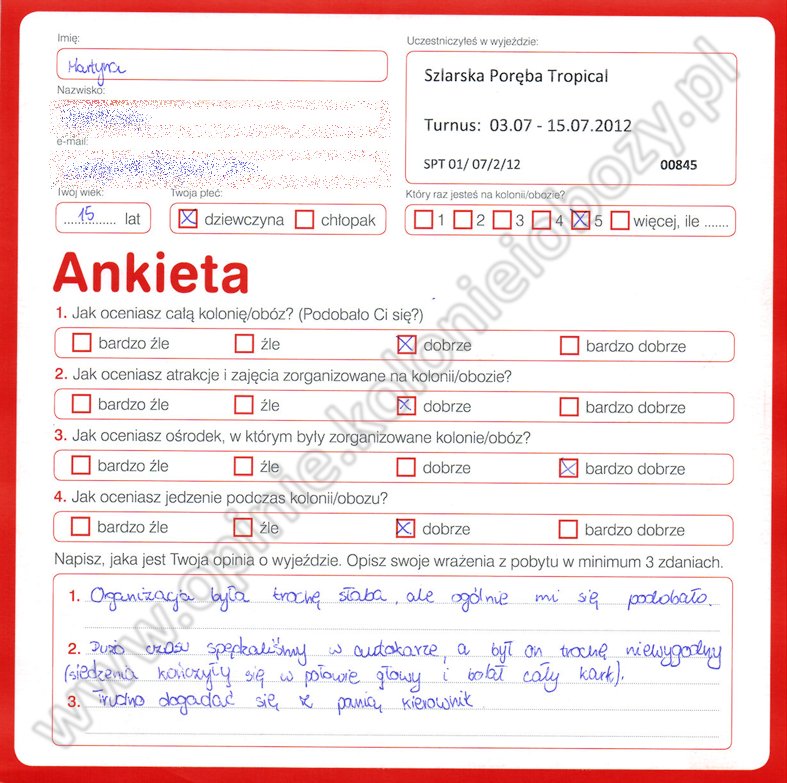 Imię:
Uczestniczyłeś w wyjeździe:
Martyna
Szlarska Poręba Tropical
Nazwisko:
Turnus: 03.07 - 15.07.2012
e-mail:
SPT 01/ 07/2/12 00845
Twój wiek:
Twoja płeć:
Który raz jesteś na kolonii/obozie?
15 lat
dziewczyna chłopak
1 2 3 4 5 więcej, ile .......
Ankieta
1. Jak oceniasz całą kolonię/obóz? (Podobało Ci się?)
bardzo źle źle dobrze bardzo dobrze
2. Jak oceniasz atrakcje i zajęcia zorganizowane na kolonii/obozie?
bardzo źle źle dobrze bardzo dobrze
3. Jak oceniasz ośrodek, w którym były zorganizowane kolonie/obóz?
bardzo źle źle dobrze bardzo dobrze
4. Jak oceniasz jedzenie podczas kolonii/obozu?
bardzo źle źle dobrze bardzo dobrze
Napisz, jaka jest Twoja opinia o wyjeździe. Opisz swoje wrażenia z pobytu w minimum 3 zdaniach.
1. Organizacja była trochę słaba, ale ogólnie mi się podobało.
2. Dużo czasu spędzaliśmy w autokarze, a był on trochę niewygodny
(siedzenia kończyły się w połowie głowy i bolał cały kark).
3. Trudno dogadać się z panią kierownik.
www.opinie.kolonieiobozy.pl